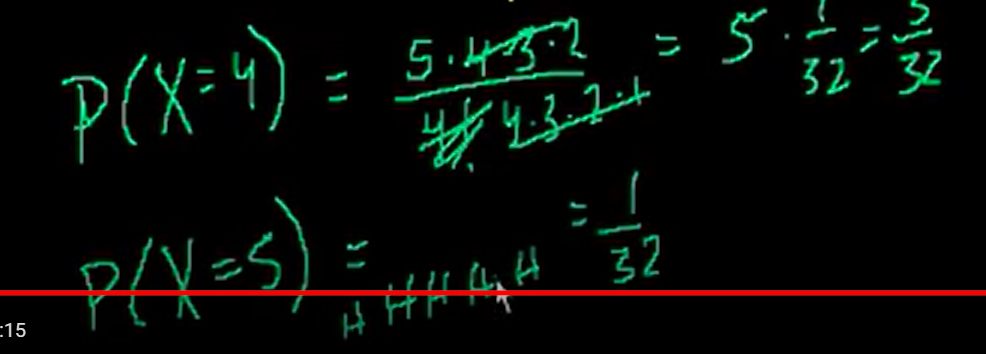 P(X=4) = 5·4·3·2 / 4! 4·3·2·1 = 5 · 1/32 = 5/32
P(X=5) = H H H H H = 1/32
:15